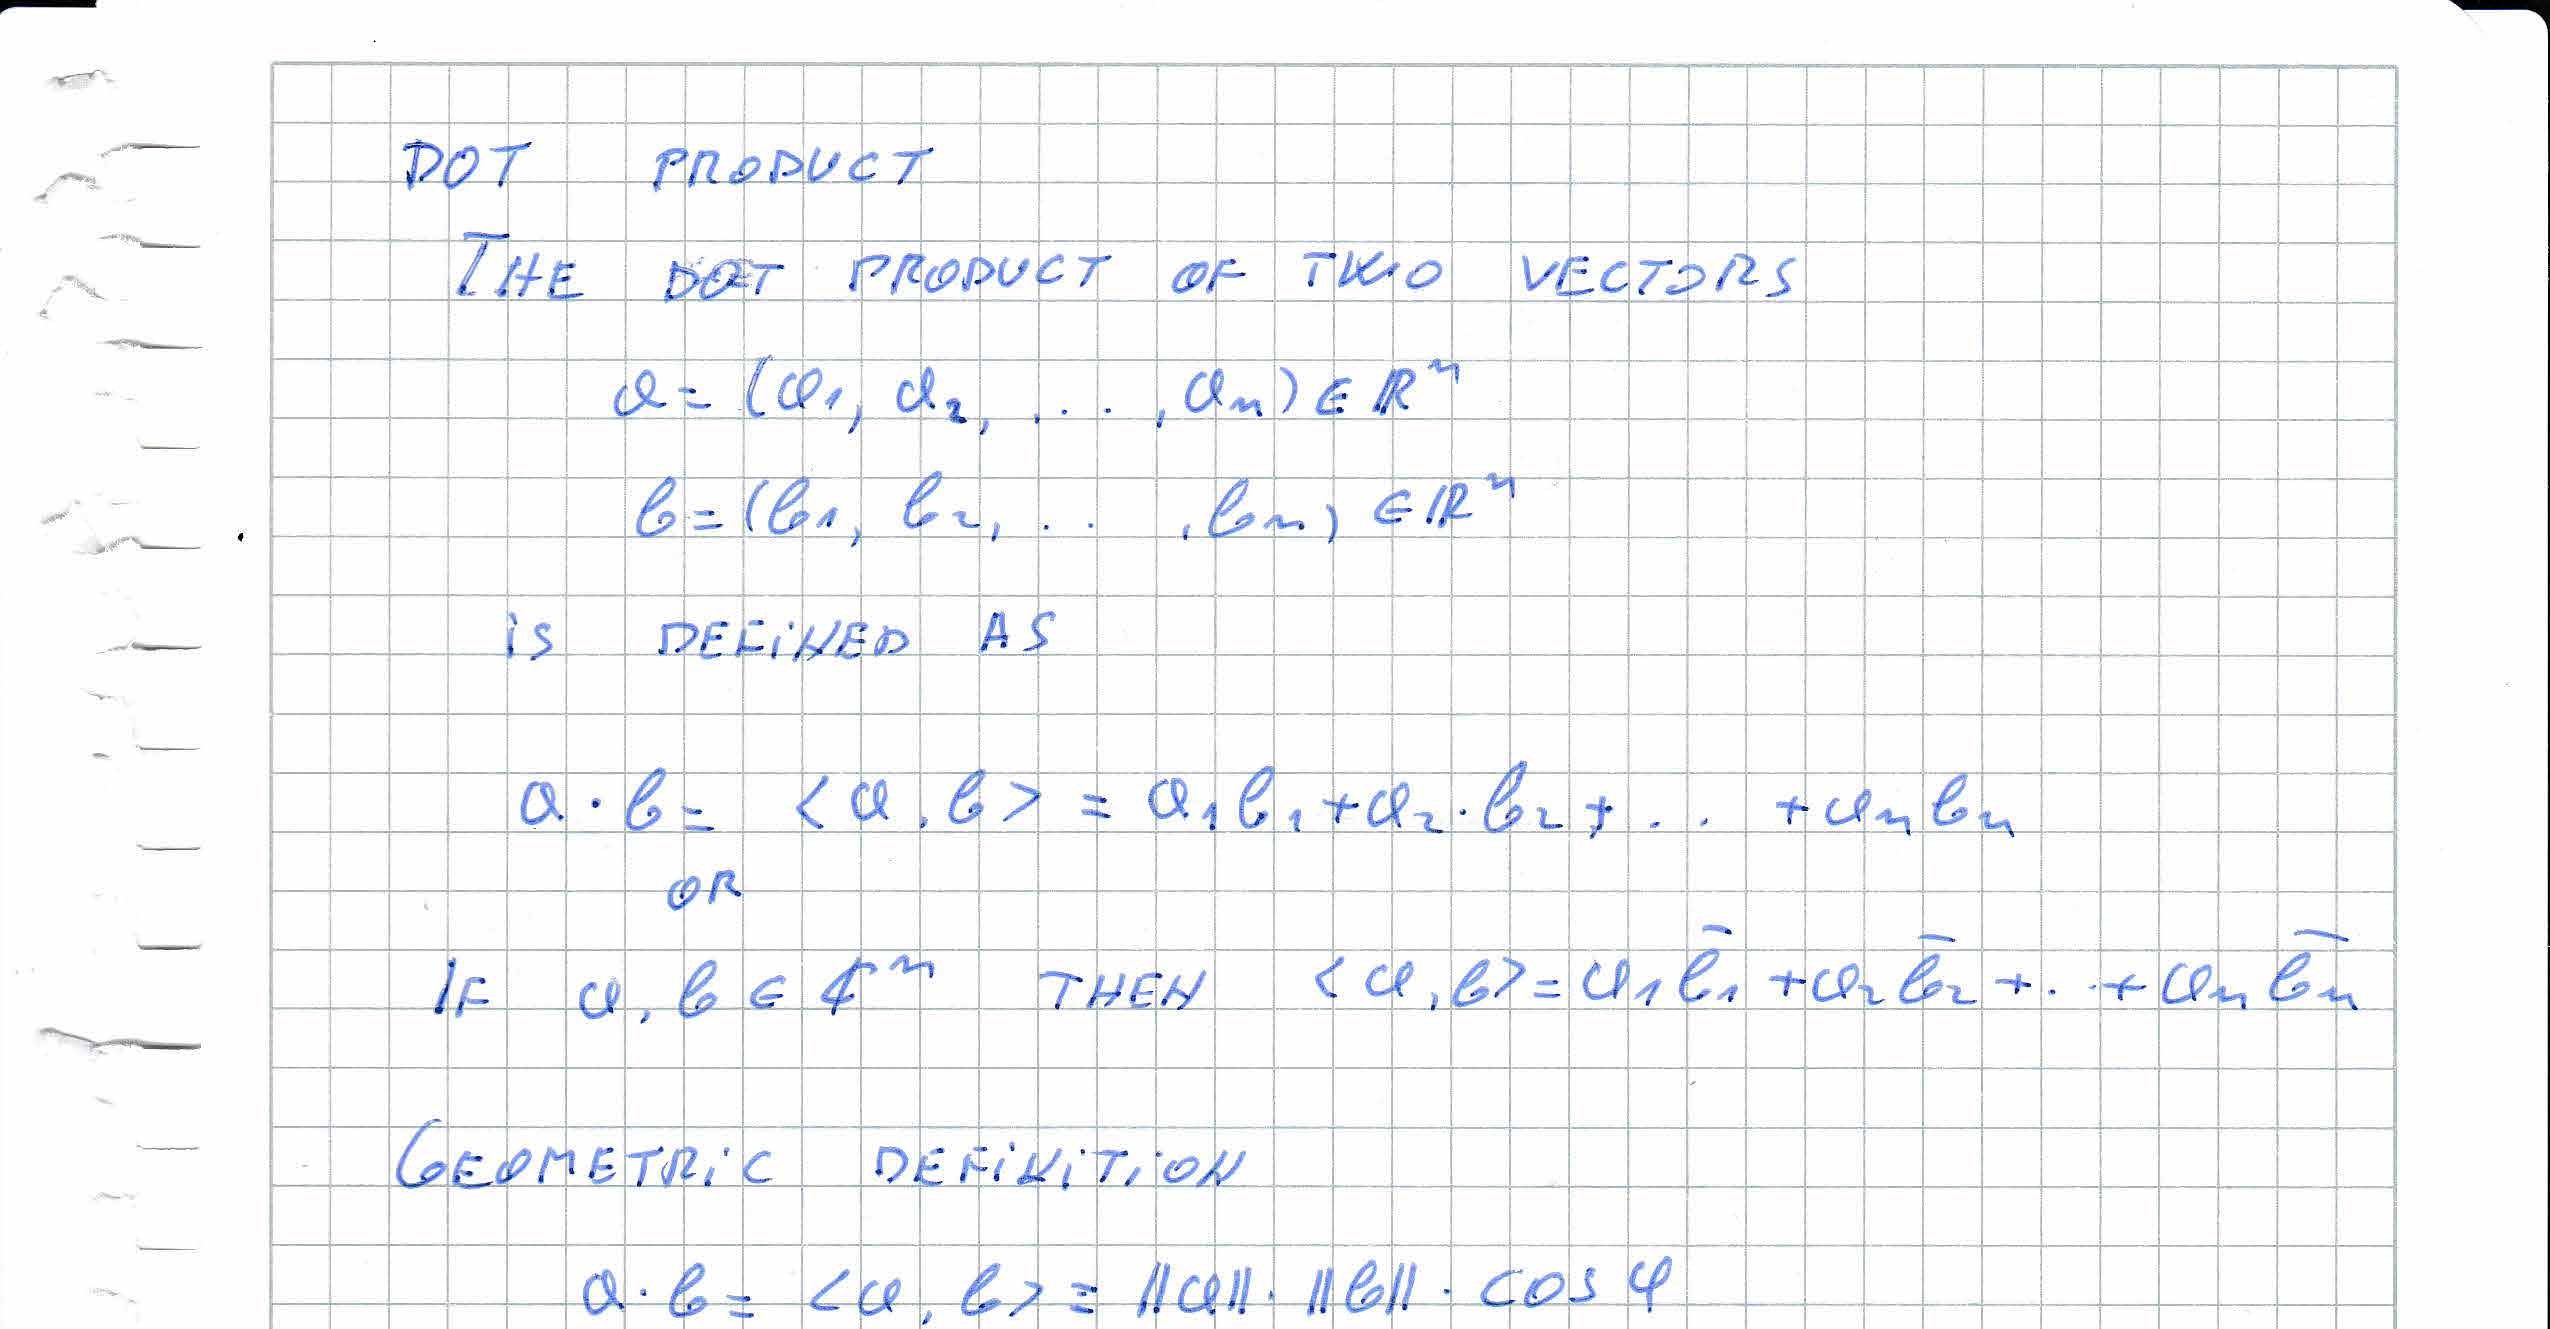 DOT PRODUCT
THE DOT PRODUCT OF TWO VECTORS
a = (a₁, a₂, ..., aₙ) ∈ ℝⁿ
b = (b₁, b₂, ..., bₙ) ∈ ℝⁿ
iS DEFiNED AS
a · b = <a, b> = a₁b₁ + a₂·b₂ + .. + aₙbₙ
OR
IF a, b ∈ ℂⁿ THEN <a, b> = a₁b̄₁ + a₂b̄₂ + .. + aₙb̄ₙ
GEOMETRiC DEFiNiTiON
a · b = <a, b> = ||a|| · ||b|| · cos φ